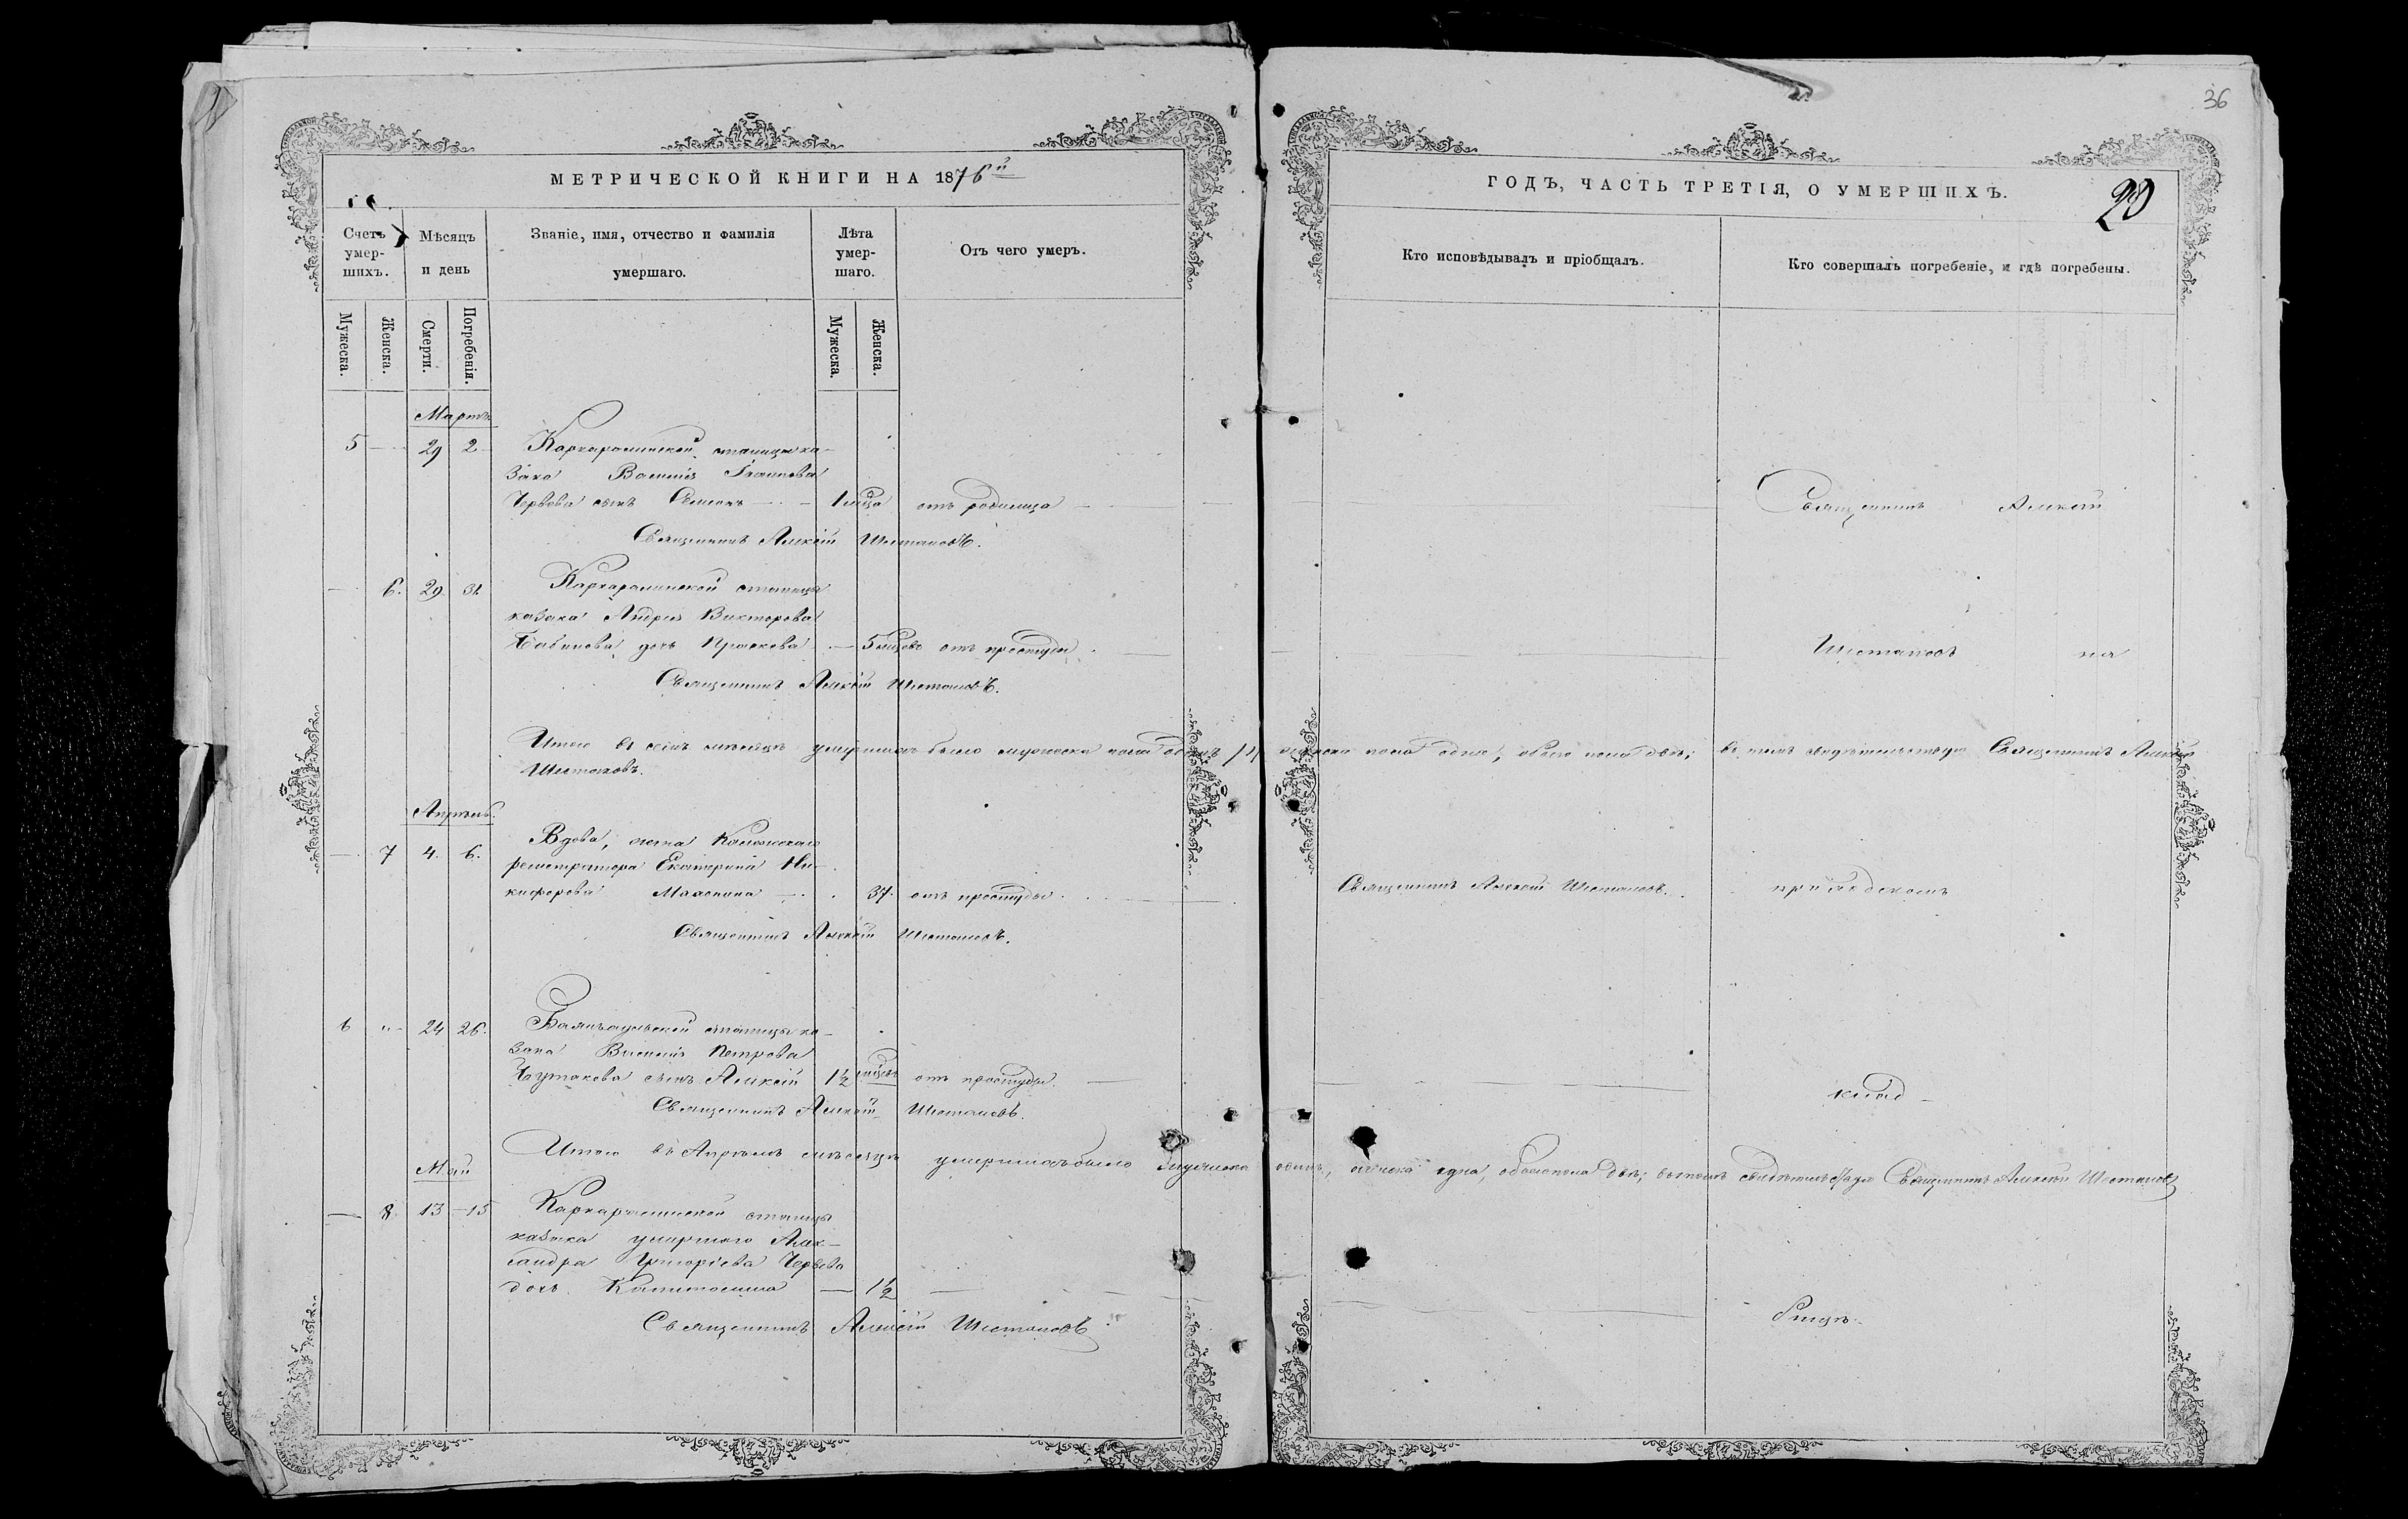 36
МЕТРИЧЕСКОЙ КНИГИ НА 1876й
ГОДЪ, ЧАСТЬ ТРЕТІЯ, О УМЕРШИХЪ.
29
Счетъ умер-шихъ.
Мѣсяцъ и день
Званіе, имя, отчество и фамилія умершаго.
Лѣта умер-шаго.
Отъ чего умеръ.
Кто исповѣдывалъ и пріобщалъ.
Кто совершалъ погребеніе, и гдѣ погребены.
Мужеска.
Женска.
Смерти.
Погребенія.
Мужеска.
Женска.
Мартъ
5 — 29 2 Каркаралинской станицы ка-
зака Василія Иванова
Червова сынъ Симеонъ — 1 м҃ца отъ родимца — Священникъ Алексій
Священникъ Алексій Шестаковъ.
— 6. 29. 31. Каркаралинской станицы
казака Андрея Викторова
Бабинова дочь Праскева — 5 мцовъ отъ простуды — Шестаковъ на
Священникъ Алексій Шестаковъ.
Итого въ семъ мѣсяцѣ умершихъ было мужеска пола одинъ, женска пола одна, обоего пола два; въ томъ свидѣтельствую Священникъ Алексій
Шестаковъ.
Апрѣль
— 7 4. 6. Вдова, жена Коллежскаго
регистратора Екатерина Ни-
кифорова — 37. отъ простуды. Священникъ Алексій Шестаковъ. приходскомъ
Священникъ Алексій Шестаковъ.
6 „ 24 26. Баянаульской станицы ка-
зака Василія Петрова
Чутакова сынъ Алексій 1½ мцевъ отъ простуды. — клад-
Священникъ Алексій Шестаковъ.
Итого въ Апрѣлѣ мѣсяцѣ умершихъ было мужеска одинъ, женска одна, обоего пола два; въ томъ свидѣтельствую Священникъ Алексій Шестаковъ
Май
— 8. 13 —15 Каркаралинской станицы
казака умершаго Алек-
сандра Григоріева Червова
дочь Капитолина — 1½ —
бищѣ.
Священникъ Алексій Шестаковъ